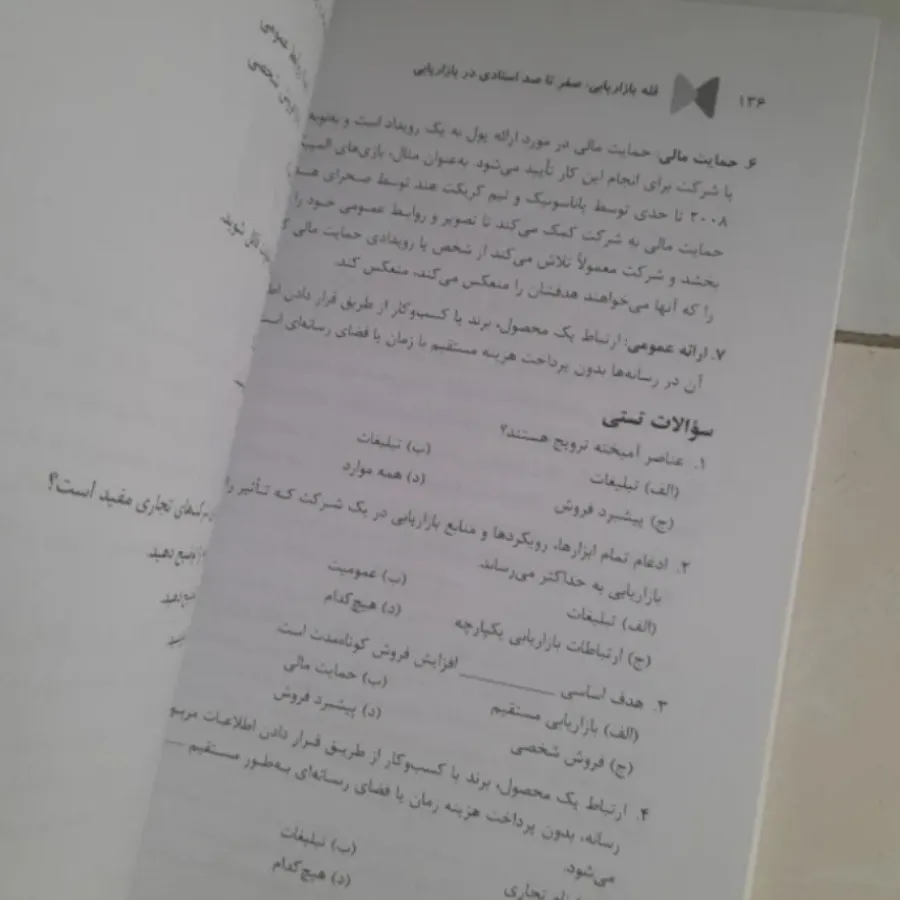 ۱۳۶
قله بازاریابی: صفر تا صد استادی در بازاریابی
۶. حمایت مالی: حمایت مالی در مورد ارائه پول به یک رویداد است و به‌نوبه
یا شرکت برای انجام این کار تأیید می‌شود. به‌عنوان مثال، بازی‌های
۲۰۰۸ تا حدی توسط پاناسونیک و تیم کریکت هند توسط صحرای
حمایت مالی به شرکت کمک می‌کند تا تصویر و روابط عمومی خود را
بخشد و شرکت معمولاً تلاش می‌کند از شخص یا رویدادی حمایت مالی
را که آنها می‌خواهند هدفشان را منعکس می‌کند، منعکس کند.
۷. ارائه عمومی: ارتباط یک محصول، برند یا کسب‌وکار از طریق قرار دادن
آن در رسانه‌ها بدون پرداخت هزینه مستقیم با زمان یا فضای رسانه‌ای
سؤالات تستی
۱. عناصر آمیخته ترویج هستند؟
(الف) تبلیغات (ب) تبلیغات
(ج) پیشبرد فروش (د) همه موارد
۲. ادغام تمام ابزارها، رویکردها و منابع بازاریابی در یک شرکت که تأثیر را
بازاریابی به حداکثر می‌رساند.
(الف) تبلیغات (ب) عمومیت
(ج) ارتباطات بازاریابی یکپارچه (د) هیچ‌کدام
۳. هدف اساسی ________ افزایش فروش کوتاه‌مدت است.
(الف) بازاریابی مستقیم (ب) حمایت مالی
(ج) فروش شخصی (د) پیشبرد فروش
۴. ارتباط یک محصول، برند یا کسب‌وکار از طریق قرار دادن اطلاعات
رسانه، بدون پرداخت هزینه زمان یا فضای رسانه‌ای به‌طور مستقیم ___
می‌شود.
(ب) تبلیغات
تجاری (د) هیچ‌کدام
شوید
تجاری مفید است؟
دهید.